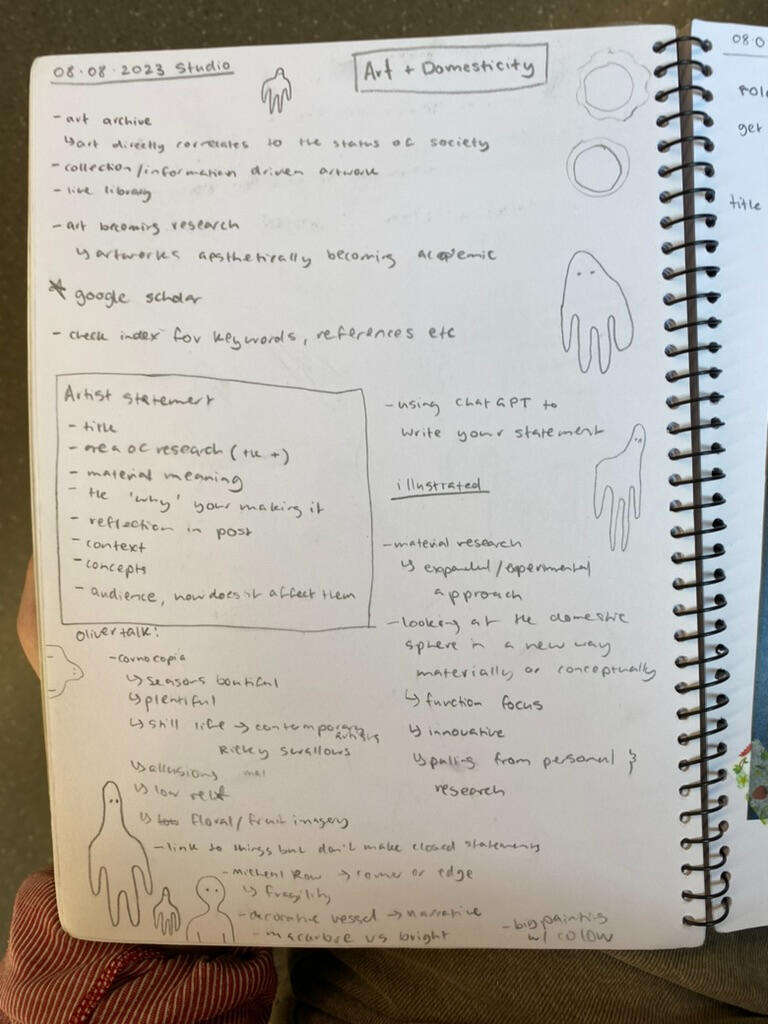 08.08.2023 Studio
Art + Domesticity
- art archive
↳ art directly correlates to the status of society
- collection/information driven artwork
- live library
- art becoming research
↳ artworks aesthetically becoming academic
* google scholar
- check index for keywords, references etc
Artist statement
- title
- area of research (the +)
- material meaning
- the 'why' your making it
- reflection in post
- context
- concepts
- audience, how does it affect them
- using ChatGPT to
write your statement
illustrated
- material research
↳ expanded/experimental
approach
- looking at the domestic
sphere in a new way
materially or conceptually
↳ function focus
↳ innovative
↳ pulling from personal }
research
Oliver talk:
- cornocopia
↳ seasons boutiful
↳ plentiful
↳ still life → contemporary
artists
Ricky swallows
↳ allusions
↳ low relief
↳ floral/fruit imagery
- link to things but don't make closed statements
- Micheal Row → corner or edge
↳ fragility
- decorative vessel → narrative
- macarbre vs bright
- big painting
w/ colour
08.0
get
title